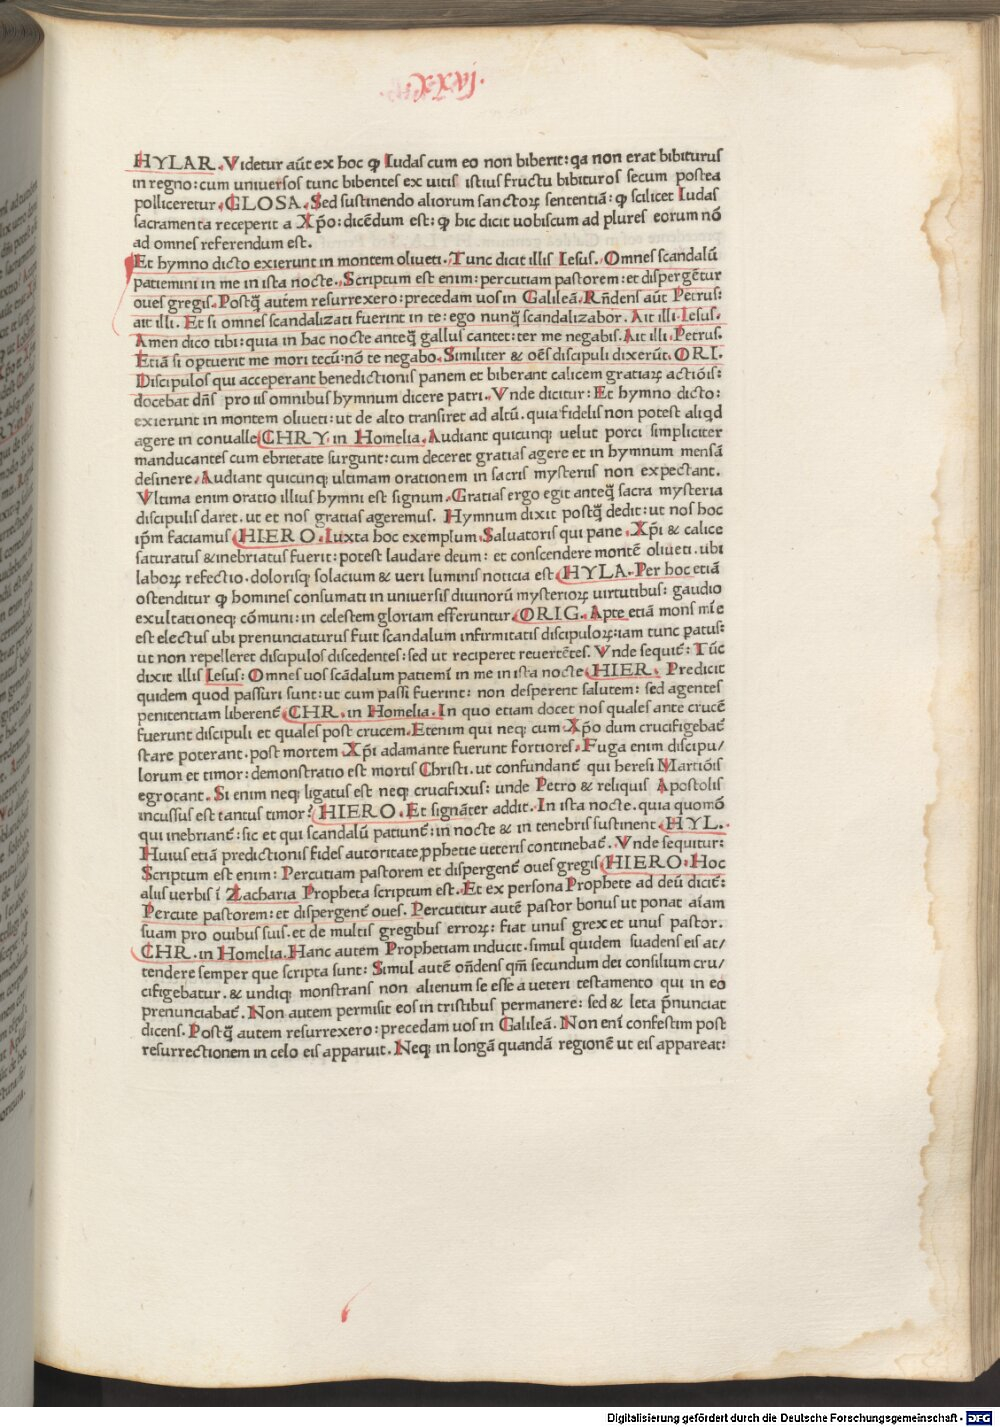 .XXXVI.
HYLAR. Videtur aūt ex hoc ꝙ Iudas cum eo non biberit: qa non erat bibiturus
in regno: cum universos tunc bibentes ex uitis istius fructu bibituros secum postea
polliceretur. GLOSA. Sed sustinendo aliorum sanctoꝝ sententiā: ꝙ scilicet Iudas
sacramenta receperit a Xp̄o: dicēdum est: ꝙ hic dicit uobiscum ad plures eorum nō
ad omnes referendum est.
Et hymno dicto exierunt in montem oliueti. Tunc dicit illis Iesus. Omnes scandalū
patiemini in me in ista nocte. Scriptum est enim: percutiam pastorem: et dispergētur
oues gregis. Postq̄ autem resurrexero: precedam uos in Galileā. Rn̄dens aūt Petrus:
ait illi. Et si omnes scandalizati fuerint in te: ego nunq̄ scandalizabor. Ait illi Iesus.
Amen dico tibi: quia in hac nocte anteq̄ gallus cantet: ter me negabis. Ait illi Petrus.
Etiā si optuerit me mori tecū: nō te negabo. Similiter & oēs discipuli dixerūt. ORI.
Discipulos qui acceperant benedictionis panem et biberant calicem gratiaꝝ actiōis:
docebat dn̄s pro iis omnibus hymnum dicere patri. Vnde dicitur: Et hymno dicto:
exierunt in montem oliueti: ut de alto transiret ad altū. quia fidelis non potest aliqd
agere in conualle. CHRY. in Homelia. Audiant quicunq; uelut porci simpliciter
manducantes cum ebrietate surgunt: cum deceret gratias agere et in hymnum mensā
desinere. Audiant quicunq; ultimam orationem in sacris mysteriis non expectant.
Vltima enim oratio illius hymni est signum. Gratias ergo egit anteq̄ sacra mysteria
discipulis daret. ut et nos gratias ageremus. Hymnum dixit postq̄ dedit: ut nos hoc
ip̄m faciamus. HIERO. Iuxta hoc exemplum Saluatoris qui pane Xp̄i & calice
saturatus & inebriatus fuerit: potest laudare deum: et conscendere montē oliueti. ubi
laboꝝ refectio. dolorisq; solacium & ueri luminis noticia est. HYLA. Per hoc etiā
ostenditur ꝙ homines consumati in universis diuinorū mysterioꝝ uirtutibus: gaudio
exultationeq; cōmuni: in celestem gloriam efferuntur. ORIG. Apte etiā mons mīe
est electus ubi prenunciaturus fuit scandalum infirmitatis discipuloꝝ: iam tunc patus:
ut non repelleret discipulos discedentes: sed ut reciperet reuertētes. Vnde sequit̄: Tūc
dixit illis Iesus: Omnes uos scādalum patiemī in me in ista nocte. HIER. Predicit
quidem quod passuri sunt: ut cum passi fuerint: non desperent salutem: sed agentes
penitentiam liberent̄. CHR. in Homelia. In quo etiam docet nos quales ante crucē
fuerunt discipuli et quales post crucem. Etenim qui neq; cum Xp̄o dum crucifigebat̄
stare poterant. post mortem Xp̄i adamante fuerunt fortiores. Fuga enim discipu/
lorum et timor: demonstratio est mortis Christi. ut confundant̄ qui heresi Martiōis
egrotant. Si enim neq; ligatus est neq; crucifixus: unde Petro & reliquis Apostolis
incussus est tantus timor? HIERO. Et signāter addit. In ista nocte. quia quomō
qui inebriant̄: sic et qui scandalū patiunt̄: in nocte & in tenebris sustinent. HYL.
Huius etiā predictionis fides autoritate ꝓphetie ueteris continebat̄. Vnde sequitur:
Scriptum est enim: Percutiam pastorem et dispergent̄ oues gregis. HIERO. Hoc
aliis uerbis ī Zacharia Propheta scriptum est. Et ex persona Prophete ad deū dicit̄:
Percute pastorem: et dispergent̄ oues. Percutitur autē pastor bonus ut ponat aīam
suam pro ouibus suis. et de multis gregibus erroꝝ: fiat unus grex et unus pastor.
CHR. in Homelia. Hanc autem Prophetiam inducit. simul quidem suadens eis at/
tendere semper que scripta sunt: Simul autē on̄dens qm̄ secundum dei consilium cru/
cifigebatur. & undiq; monstrans non alienum se esse a ueteri testamento qui in eo
prenunciabat̄. Non autem permisit eos in tristibus permanere: sed & leta p̄nunciat
dicens. Postq̄ autem resurrexero: precedam uos in Galileā. Non enī confestim post
resurrectionem in celo eis apparuit. Neq; in longā quandā regionē ut eis appareat:
Digitalisierung gefördert durch die Deutsche Forschungsgemeinschaft - DFG